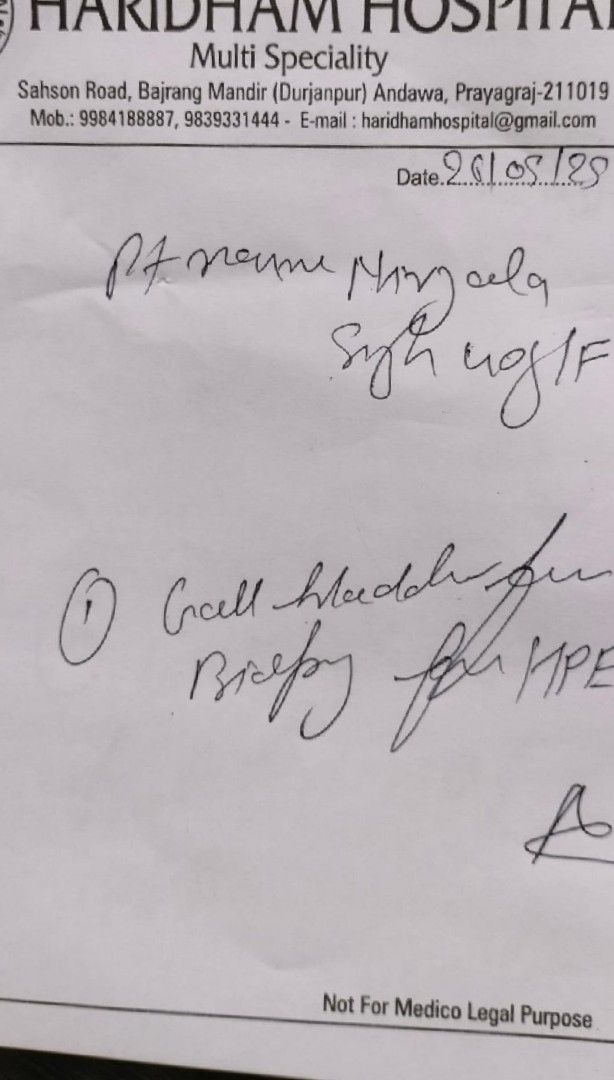 HARIDHAM HOSPITAL
Multi Speciality
Sahson Road, Bajrang Mandir (Durjanpur) Andawa, Prayagraj-211019
Mob.: 9984188887, 9839331444 - E-mail : haridhamhospital@gmail.com
Date. 26/05/25
Pt name
Singh /F
① Gall bladder for
Biopsy for HPE
Not For Medico Legal Purpose